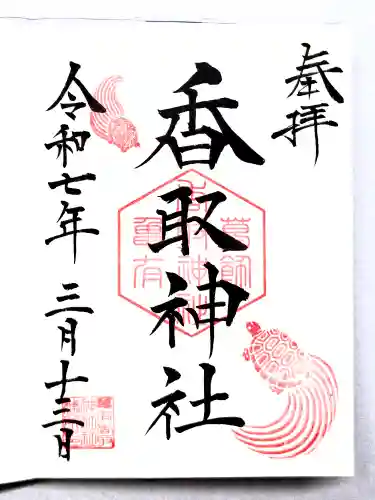 奉拝
香取神社
葛飾
亀有
令和七年 三月十三日